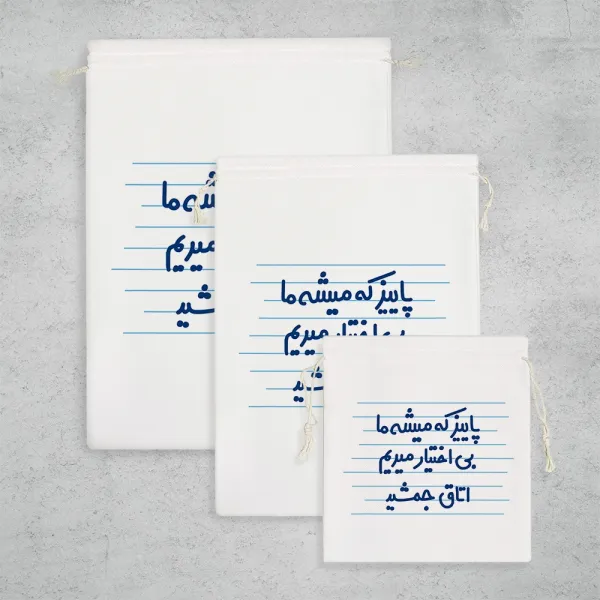 ما
میریم
پاییز که میشه ما
بی اختیار میریم
پاییز که میشه ما
بی اختیار میریم
اتاق جمشید